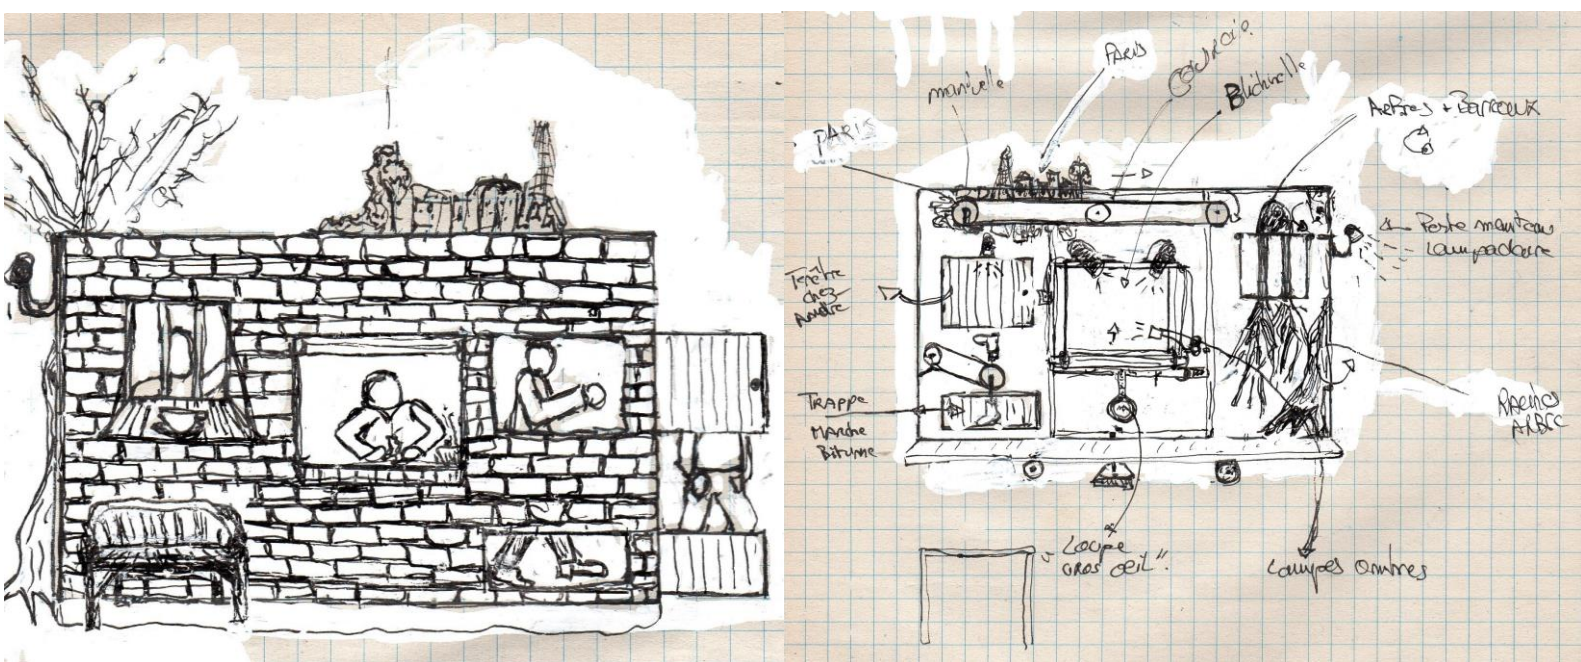 PARIS
manivelle
PARIS
Courroie
Arbres + Barreaux
Porte manteau
Lampadaire
Fenêtre
chez
André
TRAPPE
Marche
Bitume
RACINES
ARBRE
Loupe
GROS OEIL"
Lampes Ombres